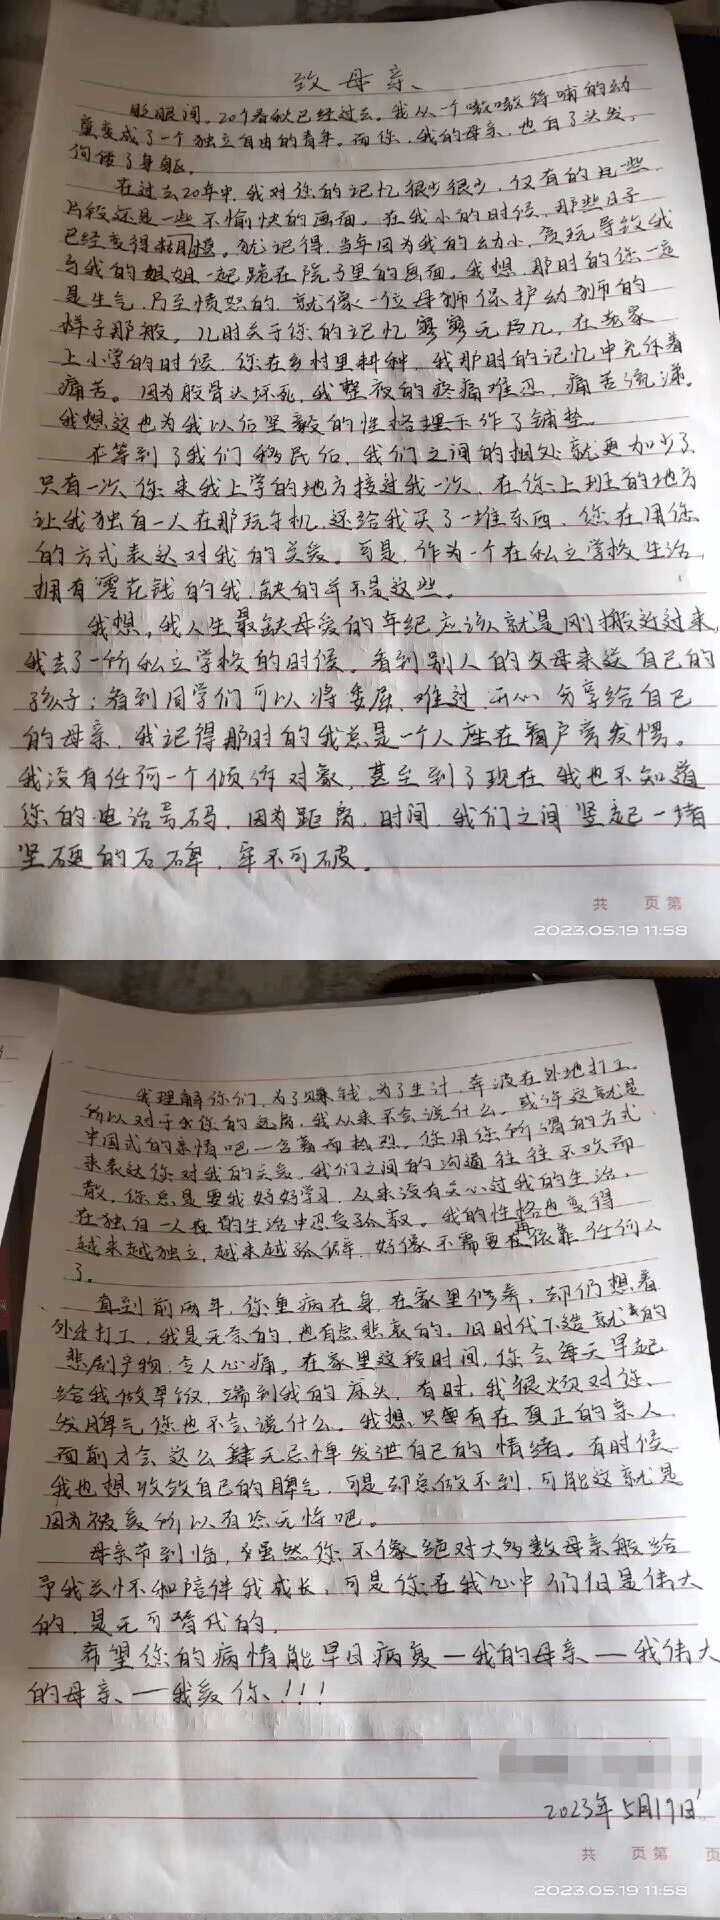 致母亲
眨眼间，20个春秋已经过去。我从一个嗷嗷待哺的幼
童变成了一个独立自由的青年。而你，我的母亲，也白了头发，
佝偻了身躯。
在过去20年中，我对你的记忆很少很少，仅有的
片段还是一些不愉快的画面。在我小的时候，那些日子
已经变得模糊。犹记得，当年因为我的幼小，贪玩导致我
与我的姐姐一起跪在院子里的画面。我想，那时的你一定
是生气，乃至愤怒的，就像一位母狮保护幼狮的
样子那般。儿时关于你的记忆寥寥无几，在老家
上小学的时候，你在乡村里耕种，我那时的记忆中充斥着
痛苦。因为股骨头坏死，我整夜的疼痛难忍，痛苦流涕。
我想这也为我以后坚毅的性格埋下作了铺垫。
在等到了我们移民后，我们之间的相处就更加少了，
只有一次，你来我上学的地方接过我一次，在你上班的地方
让我独自一人在那玩手机，还给我买了一堆东西，您在用你
的方式表达对我的关爱。可是，作为一个在私立学校生活，
拥有零花钱的我，缺的并不是这些。
我想，我人生最缺母爱的年纪应该就是刚搬迁过来，
我去了一所私立学校的时候。看到别人的父母来送自己的
孩子；看到同学们可以将委屈，难过，开心分享给自己
的母亲，我记得那时的我总是一个人座在窗户旁发愣。
我没有任何一个倾诉对象，甚至到了现在我也不知道
您的电话号码，因为距离，时间，我们之间竖起一堵
坚硬的石碑，牢不可破。
共 页 第
2023.05.19 11:58
我理解你们，为了赚钱，为了生计，奔波在外地打工。
所以对于你的远离，我从来不会说什么。或许这就是
中国式的亲情吧—含蓄而热烈。你用你所谓的方式
来表达你对我的关爱，我们之间的沟通往往不欢而
散。你总是要我好好学习，从来没有关心过我的生活，
在独自一人在的生活中忍受孤寂。我的性格也变得
越来越独立，越来越孤僻，好像不需要再依靠任何人
了。
直到前两年，你重病在身，在家里修养，却仍想着
外出打工，我是无奈的，也有点悲哀的。旧时代下造就的
悲剧产物，令人心痛。在家里这段时间，你会每天早起
给我做早饭，端到我的床头，有时，我很烦对你
发脾气你也不会说什么。我想，只要有在真正的亲人
面前才会这么肆无忌惮发泄自己的情绪。有时候
我也想收敛自己的脾气，可是却总做不到，可能这就是
因为被爱所以有恃无恐吧。
母亲节到临，虽然你不像绝对大多数母亲般给
予我关怀和陪伴我成长，可是你在我心中们旧是伟大
的，是无可替代的。
希望您的病情能早日病复—我的母亲—我伟大
的母亲—我爱你！！！
2023年5月19日
共 页 第 页
2023.05.19 11:58